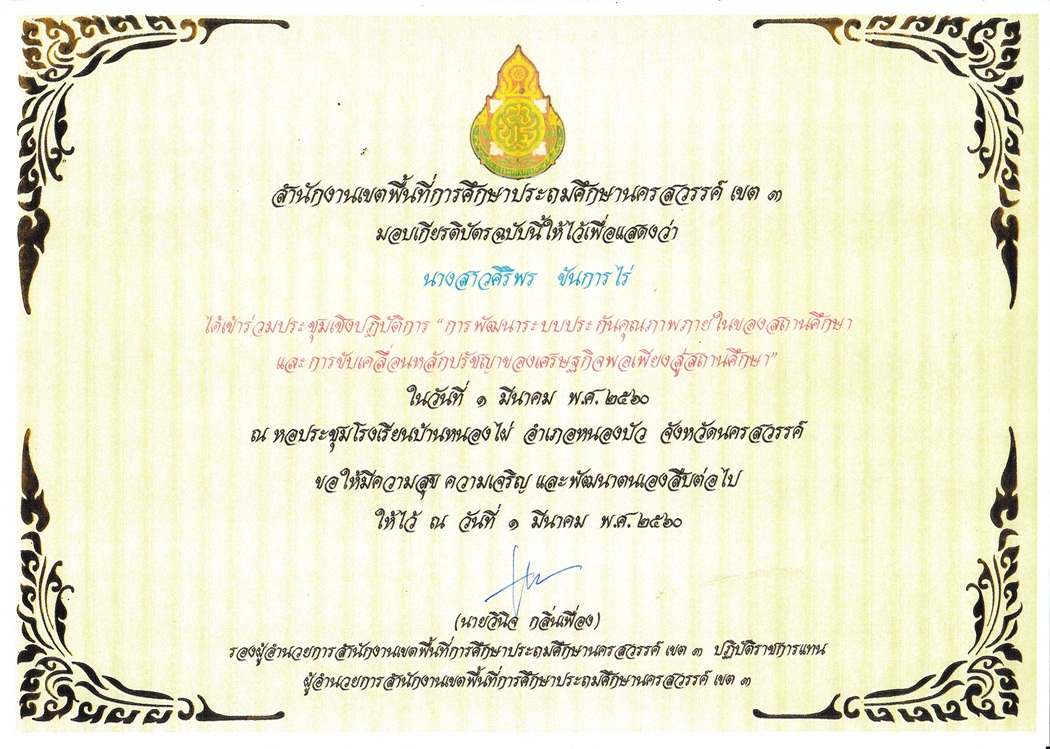 สำนักงานเขตพื้นที่การศึกษาประถมศึกษานครสวรรค์ เขต ๓
มอบเกียรติบัตรฉบับนี้ให้ไว้เพื่อแสดงว่า
นางสาวศิริพร ขันการไร่
ได้เข้าร่วมประชุมเชิงปฏิบัติการ "การพัฒนาระบบประกันคุณภาพภายในของสถานศึกษา
และการขับเคลื่อนหลักปรัชญาของเศรษฐกิจพอเพียงสู่สถานศึกษา"
ในวันที่ ๑ มีนาคม พ.ศ. ๒๕๖๐
ณ หอประชุมโรงเรียนบ้านหนองไผ่ อำเภอหนองบัว จังหวัดนครสวรรค์
ขอให้มีความสุข ความเจริญ และพัฒนาตนเองสืบต่อไป
ให้ไว้ ณ วันที่ ๑ มีนาคม พ.ศ. ๒๕๖๐
(นายวินิจ กลิ่นเฟื่อง)
รองผู้อำนวยการสำนักงานเขตพื้นที่การศึกษาประถมศึกษานครสวรรค์ เขต ๓ ปฏิบัติราชการแทน
ผู้อำนวยการสำนักงานเขตพื้นที่การศึกษาประถมศึกษานครสวรรค์ เขต ๓